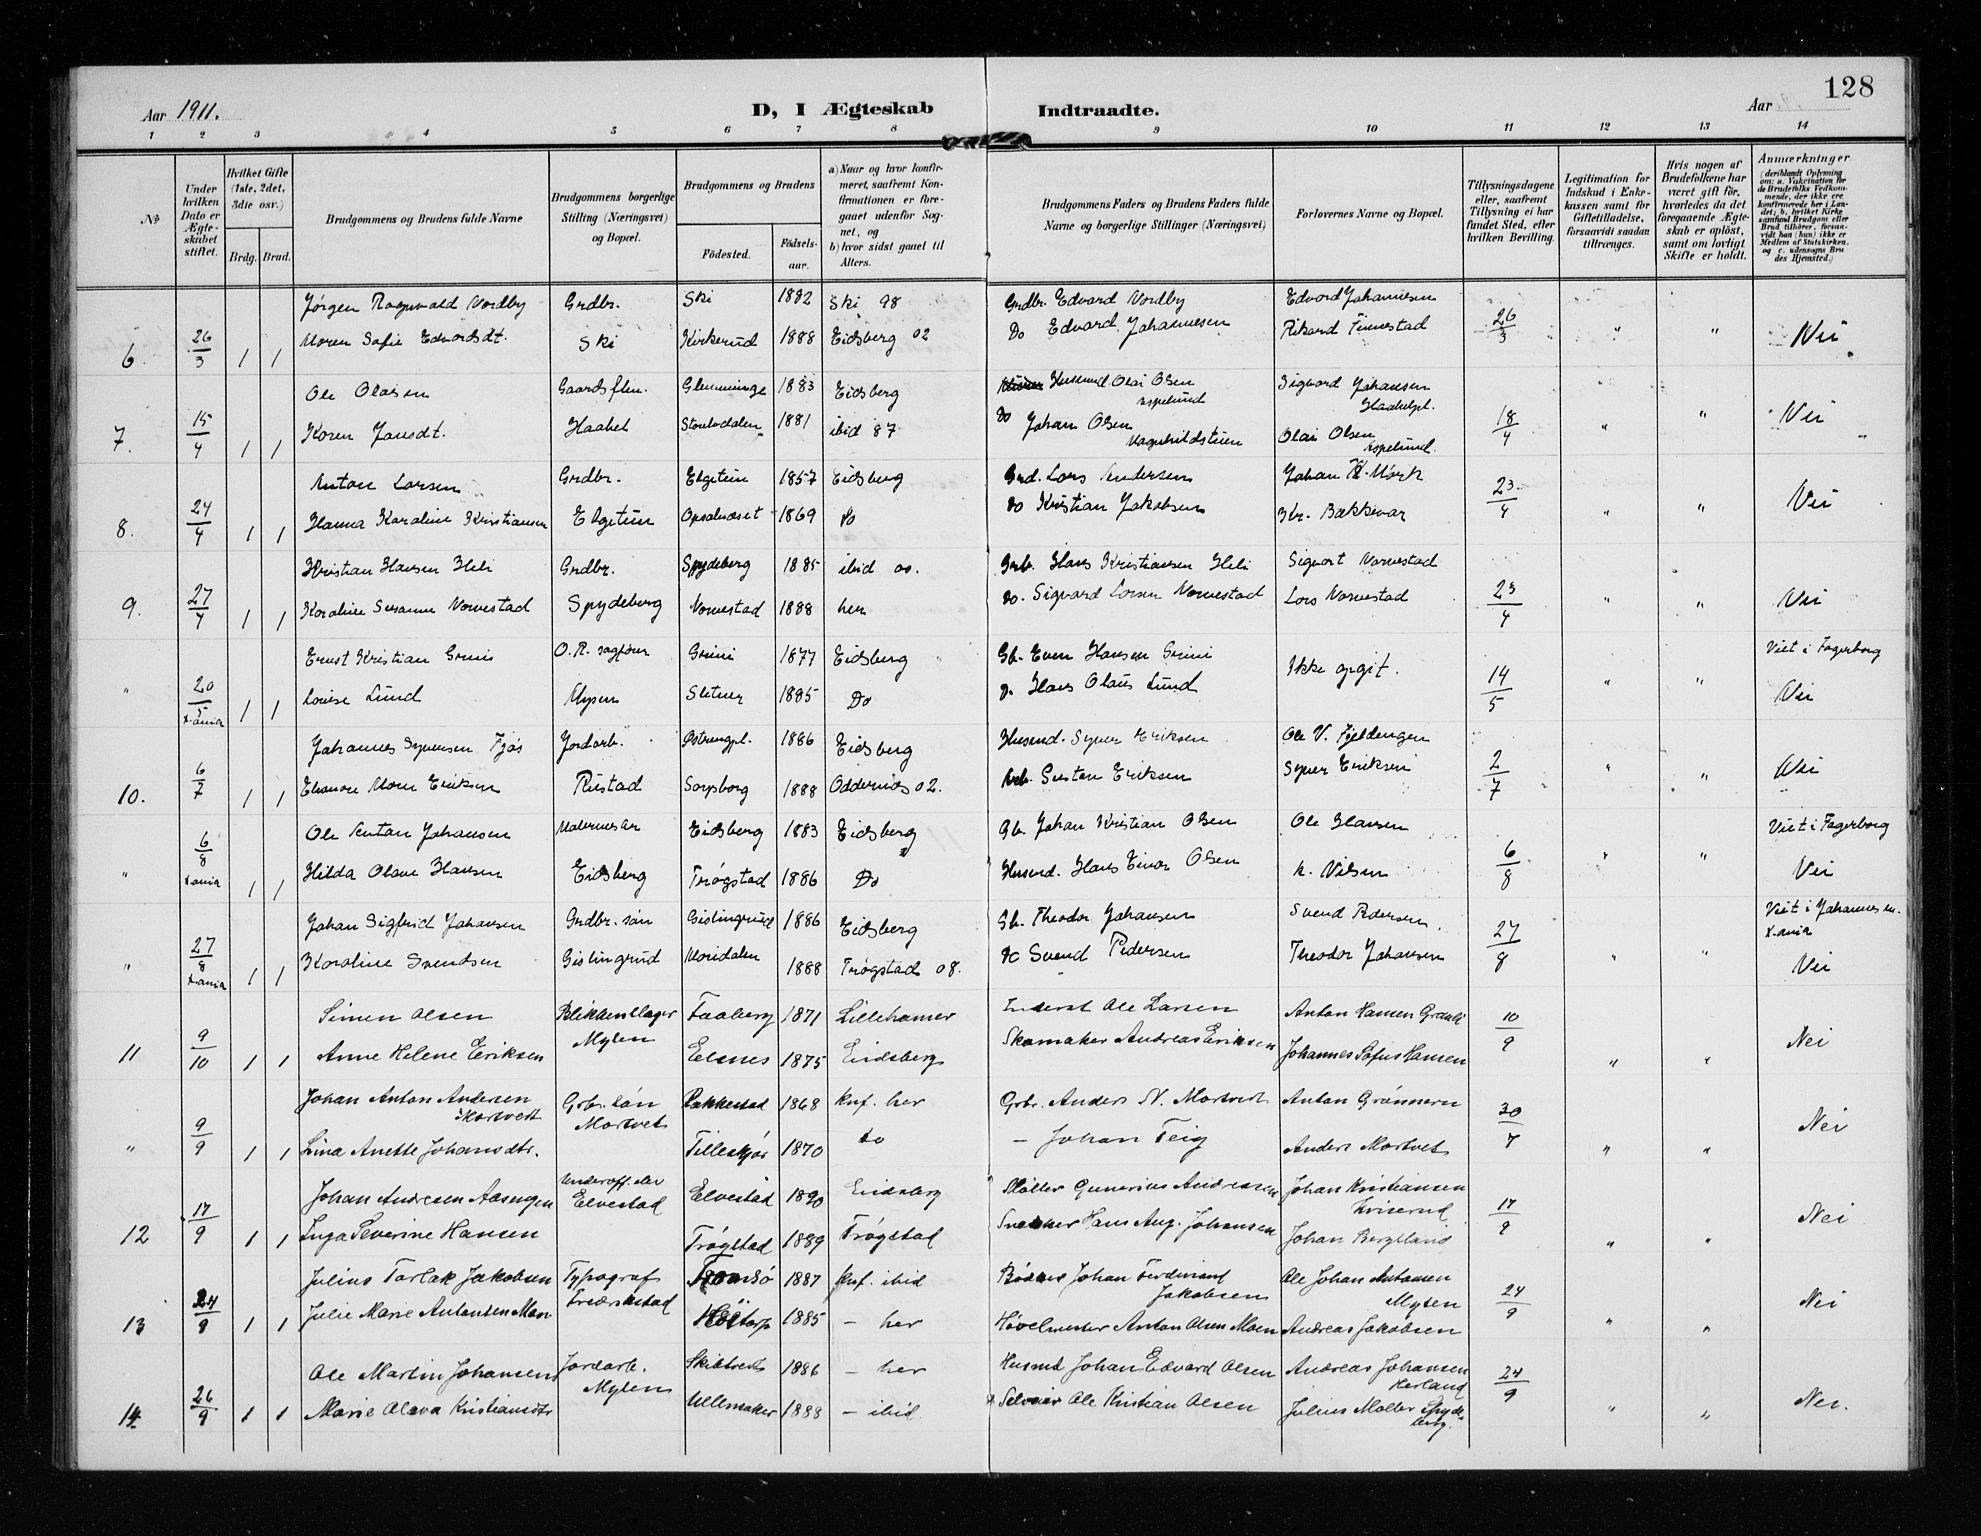 128
Aar 1911.
D, I Ægteskab Indtraadte.
Aar
1 2 3 4 5 6 7 8 9 10 11 12 13 14
No
Under hvilken Dato er Ægteskabet stiftet.
Hvilket Gifte (1ste, 2det, 3die osv.)
Brdg. Brud.
Brudgommens og Brudens fulde Navne
Brudgommens borgerlige Stilling (Næringsvei) og Bopæl.
Brudgommens og Brudens
Fødested.
Fødselsaar.
a) Naar og hvor konfirmeret, saafremt Konfirmationen er foregaaet udenfor Sognet, og
b) hvor sidst gaaet til Alters.
Brudgommens Faders og Brudens Faders fulde Navne og borgerlige Stillinger (Næringsvei)
Forlovernes Navne og Bopæl.
Tillysningsdagene eller, saafremt Tillysning ei har fundet Sted, efter hvilken Bevilling.
Legitimation for Indskud i Enkekassen samt for Giftetilladelse, forsaavidt saadan tiltrænges.
Hvis nogen af Brudefolkene har været gift før, hvorledes da det foregaaende Ægteskab er opløst, samt om lovligt Skifte er holdt.
Anmærkninger (deriblandt Oplysning om: a. Vakcination for de Brudefolks Vedkommende, der ikke ere konfirmerede her i Landet; b. hvilket Kirkesamfund Brudgom eller Brud tilhører, forsaavidt han (hun) ikke er Medlem af Statskirken, og c. udensogns Brudes Hjemsted.)
Jørgen Ragnvald Nordby Grdbr. Ski 1882 Ski 98 Grdbr. Edvard Nordby Edvard Johannesen
6. 26/3 1 1 Maren Sofie Edvardsdt. Ski Kirkerud 1888 Eidsberg 02 Do Edvard Johannesen Rikard Finnestad 26/3 " " Nei
Ole Olasen Gaards Glemminge 1883 Eidsberg Husmd Olai Olsen Sigvard Johansen
7. 15/4 1 1 Karen Jansdt. Haabet 1881 ibid 87 Do Johan Olsen Olai Olsen 18/4 " " Nei
Anton Larsen Grdbr. Elgetun 1857 Eidsberg Grd. Lars Andersen Johan K. Mørk
8. 24/4 1 1 Hanna Karoline Kristiansen Elgetun 1869 Do Do Kristian Jakobsen Kr. Bækkevar 23/4 " " Nei
Kristian Hansen Heli Grdbr. Spydeberg 1885 ibid 00. Grb. Hans Kristiansen Heli Sigvart Narvestad
9. 27/4 1 1 Karoline Susanne Narvestad Spydeberg Narvestad 1888 her Do. Sigvard Larsen Narvestad Lars Narvestad 23/4 " " Nei
Ernst Kristian Grini O.R. sagfører Grini 1877 Eidsberg Gb. Even Hansen Grini Ikke opgit. Viet i Fagerborg
" 20/5 X.ania 1 1 Louise Lund Mysen Sletner 1885 Do D. Hans Olaus Lund 14/5 " " Nei
Johannes Syversen Fjøs Jordarb. 1886 Eidsberg Husmd. Syver Eriksen Ole N. Fjeldengen
10. 6/7 1 1 Eleonore Marie Eriksen Rustad Sarpsborg 1888 Oddernes 02. Arb. Gustav Eriksen Syver Eriksen 2/7 " " Nei
Ole Anton Johansen Eidsberg 1883 Eidsberg Gb. Johan Kristian Olsen Ole Hansen Viet i Fagerborg
" 6/8 X.ania 1 1 Hilda Olave Hansen Eidsberg Trøgstad 1886 Do Husmd. Hans Einar Olsen K. Nilsen 6/8 " " Nei
Johan Sigfred Johansen Grdbr. søn Gislingrud 1886 Eidsberg Gb. Theodor Johansen Svend Pedersen. Viet i Johannes X.ania
" 27/8 X.ania 1 1 Karoline Svendsen Gislingrud Moridalen 1888 Trøgstad 08. Do Svend Pedersen Theodor Johansen 27/8 " " Nei
Simen Olsen Blikkenslager Faaberg 1871 Lillehamer Inderst Ole Larsen Anton Hansen
11 9/10 1 1 Anne Helene Eriksen Mysen Elsnes 1875 Eidsberg Skomaker Andreas Eriksen Johannes Sofus Hansen 10/9 " " Nei
Johan Anton Andersen Mortvedt Grbr. søn Rakkestad 1868 Knf. her Grbr. Anders N. Mortvedt Anton Grønnern
" 9/9 1 1 Lina Anette Johansdtr. Mortvet 1870 Do – Johan Teig Anders Mortvet 30/7 " " Nei
Johan Andresen Aasengen Underoff. elev Elvestad 1890 Eidsberg Møller Gunerius Andreassen Johan Kristiansen
12 17/9 1 1 Inga Severine Hansen Elvestad Trøgstad 1889 Trøgstad Snekker Hans Aug. Johansen Johan Bergsland 17/9 " " Nei
Julius Torlak Jakobsen Typograf Tromsø 1887 Knf. ibid Bødker Johan Ferdinand Jakobsen Ole Johan Antonsen Mysen
13 24/9 1 1 Julie Marie Antonsen Moen Fredrikstad Høitorp 1885 – her Høvelmester Anton Olsen Moen Andreas Jakobsen 24/9 " " Nei
Ole Martin Johansen Jordarb. Skibtvedt 1886 – her Husmd Johan Edvard Olsen Andreas Johansen Herland
14. 26/9 1 1 Marie Olava Kristiansdtr Mysen Ullemaker 1888 – ibid Selveier Ole Kristian Olsen Julius Møller Spydeberg. 24/9 " " Nei.